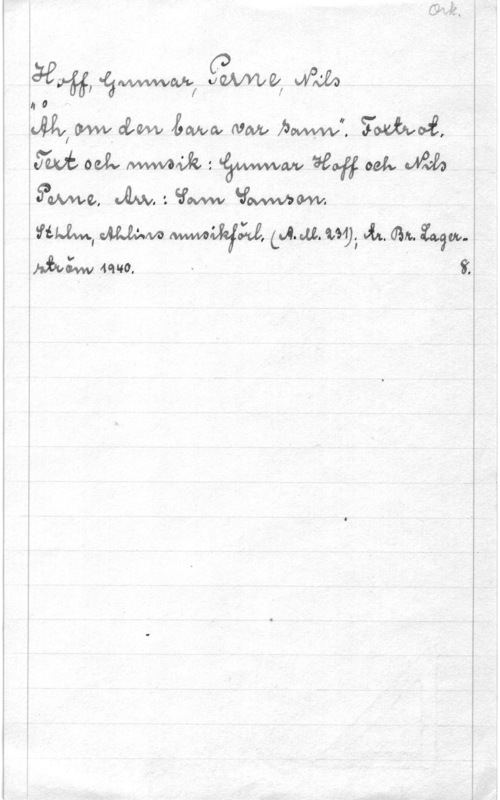 Ork.
Hoff, Gunnar, Perne, Nils
"Åh, om den bara var sann". Foxtrot.
Text och musik: Gunnar Hoff och Nils
Perne. Arr.: Sam Samson.
Sthlm, Ahlins musikförl. (A.M. 231); tr. Br. Lager-
ström 1940. 8.